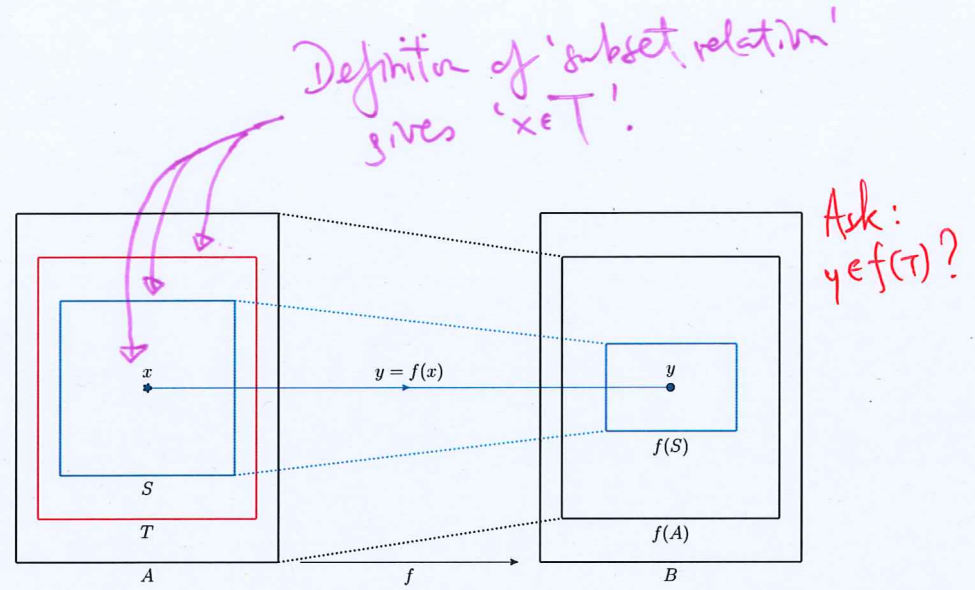 Definition of 'subset relation'
gives 'x∈T'.
Ask:
y∈f(T)?
x
y = f(x)
y
S
f(S)
T
f(A)
A
f
B